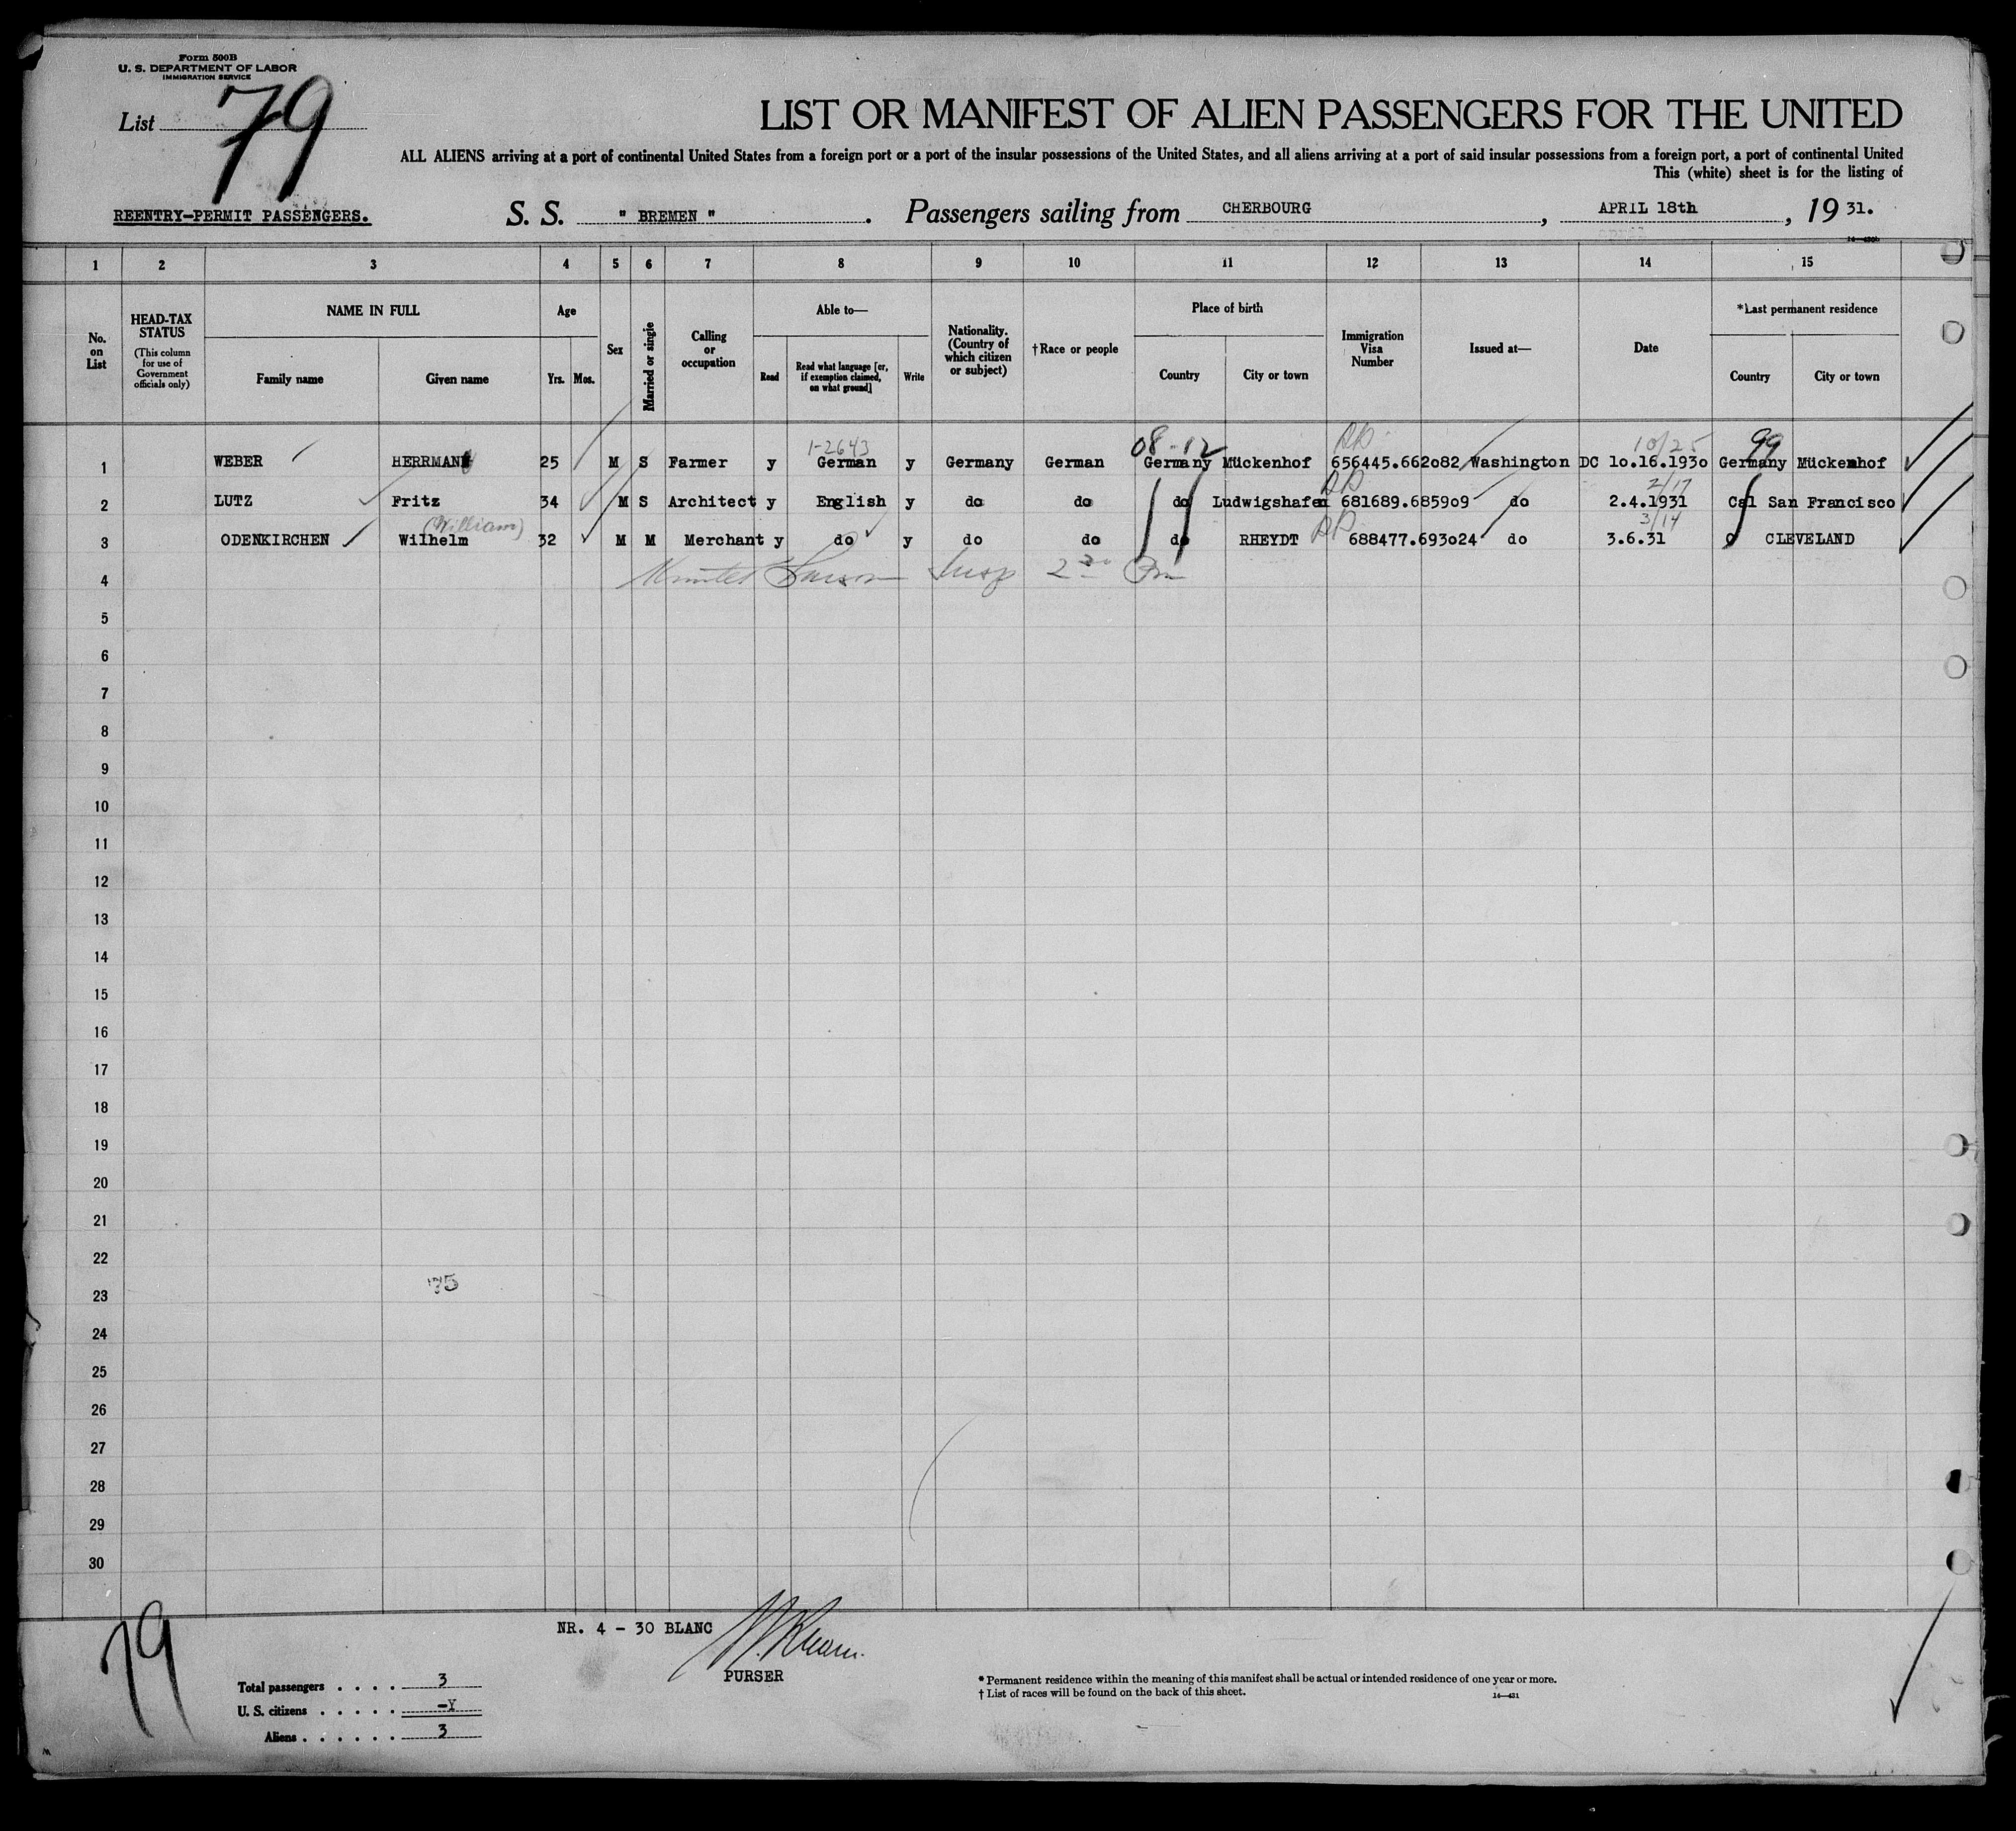 Form 500B
U. S. DEPARTMENT OF LABOR
IMMIGRATION SERVICE
List 79
LIST OR MANIFEST OF ALIEN PASSENGERS FOR THE UNITED
ALL ALIENS arriving at a port of continental United States from a foreign port or a port of the insular possessions of the United States, and all aliens arriving at a port of said insular possessions from a foreign port, a port of continental United
This (white) sheet is for the listing of
REENTRY-PERMIT PASSENGERS. S. S. " BREMEN ". Passengers sailing from CHERBOURG, APRIL 18th, 19 31.
1 2 3 4 5 6 7 8 9 10 11 12 13 14 15
No. on List
HEAD-TAX STATUS
(This column for use of Government officials only)
NAME IN FULL
Family name Given name
Age
Yrs. Mos.
Sex
Married or single
Calling or occupation
Able to—
Read
Read what language [or, if exemption claimed, on what ground]
Write
Nationality. (Country of which citizen or subject)
†Race or people
Place of birth
Country City or town
Immigration Visa Number
Issued at—
Date
*Last permanent residence
Country City or town
1-2643 08-12 10/25 99
1 WEBER HERRMANN 25 M S Farmer y German y Germany German Germany Mückenhof 656445.662082 Washington DC 10.16.1930 Germany Mückenhof
2/17
2 LUTZ Fritz 34 M S Architect y English y do do do Ludwigshafen 681689.685909 do 2.4.1931 Cal San Francisco
(William) 3/14
3 ODENKIRCHEN Wilhelm 32 M M Merchant y do y do do do RHEYDT 688477.693024 do 3.6.31 O CLEVELAND
4 Insp 2 30 Pm
5
6
7
8
9
10
11
12
13
14
15
16
17
18
19
20
21
22
23
24
25
26
27
28
29
30
79
NR. 4 - 30 BLANC
PURSER
Total passengers . . . . 3
U. S. citizens . . . . . -Y
Aliens . . . . . . 3
* Permanent residence within the meaning of this manifest shall be actual or intended residence of one year or more.
† List of races will be found on the back of this sheet.
14—431